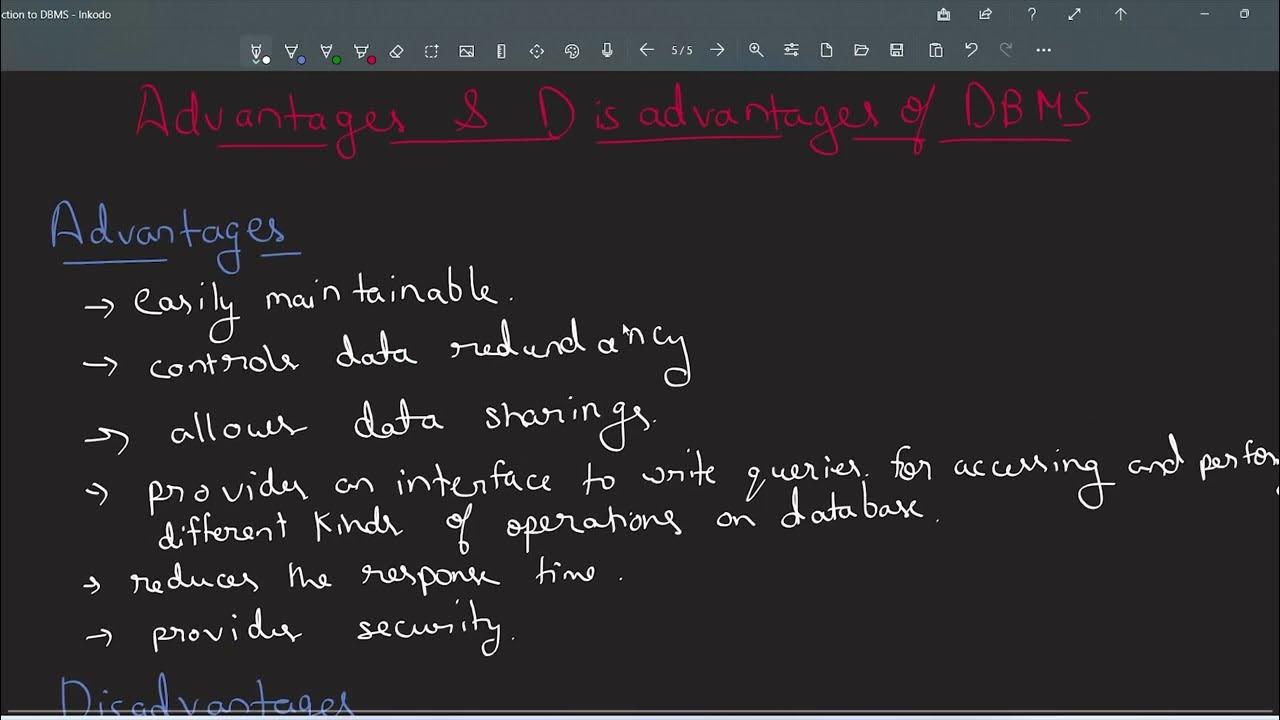 ction to DBMS - Inkodo
5/5
Advantages & Disadvantages of DBMS
Advantages
→ easily maintainable.
→ controls data redundancy
→ allows data sharings.
→ provides an interface to write queries. for accessing and perfor
different kinds of operations on database.
→ reduces the response time.
→ provides security.
Disadvantages